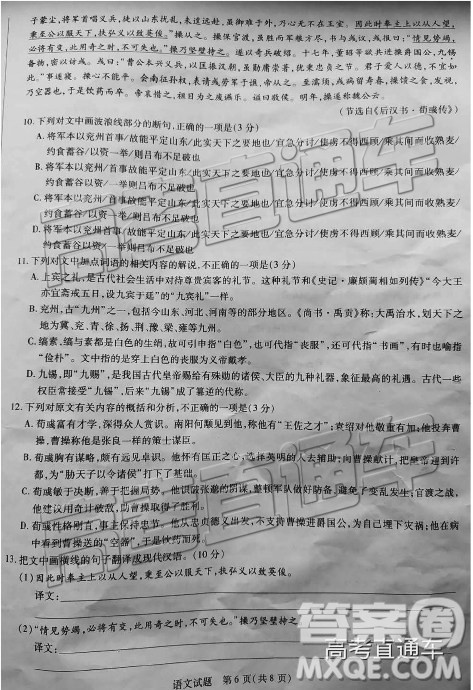 子蒙尘，将军首唱义兵，徒以山东扰乱，未遑远赴，虽御难于外，乃心无不在王室。因此时奉主上以从人望，
秉至公以服天下，扶弘义以致英俊。”操从之。
必将有变，此用奇之时，不可失也。”操乃坚壁持之。遂以奇兵破绍。十七年，董昭等欲共进操爵国公，九锡
乃空器也，于是饮药而卒。
（节选自《后汉书·荀彧传》）
10. 下列对文中画波浪线部分的断句，正确的一项是(3 分)
A. 将军本以兖州首事/故能平定山东/此实天下之要地也/宜急分讨/使虏不得西顾/乘其间而收熟麦/
约食蓄谷/以资一举/则吕布不足破也
B. 将军本以兖州首事/故能平定山东/此实天下之要地也/宜急分讨/使虏不得西顾/乘其间而收熟麦/
约食蓄谷以资/一举则吕布不足破也
C. 将军本以兖州/首事故能平定山东/此实天下之要地也/宜急分讨/使虏不得西顾/乘其间而收熟麦/
约食蓄谷/以资一举/则吕布不足破也
D. 将军本以兖州/首事故能平定山东/此实天下之要地也/宜急分讨/使虏不得西顾/乘其间而收熟麦/
约食蓄谷以资/一举则吕布不足破也
11. 下列对文中加点词语的相关内容的解说，不正确的一项是(3 分)
A. 上宾之礼，是古代社会生活中对待尊贵宾客的礼节。这种礼节和《史记·廉颇蔺相如列传》“今大王
亦宜斋戒五日，设九宾于廷”的“九宾礼”一样。
B. 兖州，古“九州”之一，包括今山东、河北、河南等的部分地区。《尚书·禹贡》称：大禹治水，划天下之
地为冀、兖、青、徐、扬、荆、豫、梁、雍等九州。
C. 缟素，缟与素都是白色的生绢，故可引申指“白色”，也可代指“丧服”，还可代指“书画”，有时也喻指
“俭朴”。文中指的是穿上白色的丧服为义帝戴孝。
D. 九锡，即“九赐”，是我国古代皇帝赐给有殊勋的诸侯、大臣的九种礼器，象征最高的礼遇。古代一些
权臣常接受“九锡”，后来演变成了篡逆的代称。
12. 下列对原文有关内容的概括和分析，不正确的一项是(3 分)
A. 荀彧富有才学，深得众人赏识。南阳何颙见到他，称他有“王佐之才”；袁绍对他敬重有加；他投奔曹
操，曹操称他是张良一样的策士谋臣。
B. 荀彧胸有谋略，颇有远见卓识。他怀有匡正之心，选择英明的人去辅助；向曹操献计，把皇帝迎到许
都，为“胁天子以令诸侯”打下了基础。
C. 荀彧敏于决断，善于把握局势。他识破张邈的阴谋，整顿军队做好防备，避免了变乱发生；官渡之战，
他建议用奇计破敌，帮助曹操大败袁绍。
D. 荀彧性格刚直，事主保持忠节。他从忠贞德义出发，不支持曹操进爵国公，为自己埋下灾祸；他在病
中看到曹操送的“空器”，于是饮药而死。
13. 把文中画横线的句子翻译成现代汉语。(10 分)
(1) 因此时奉主上以从人望，秉至公以服天下，扶弘义以致英俊。
译文：
(2) “情见势竭，必将有变，此用奇之时，不可失也。”操乃坚壁持之。
译文：
语文试题 第 6 页(共 8 页)
高考直通车
答案圈
高考直通车
MXQE.COM